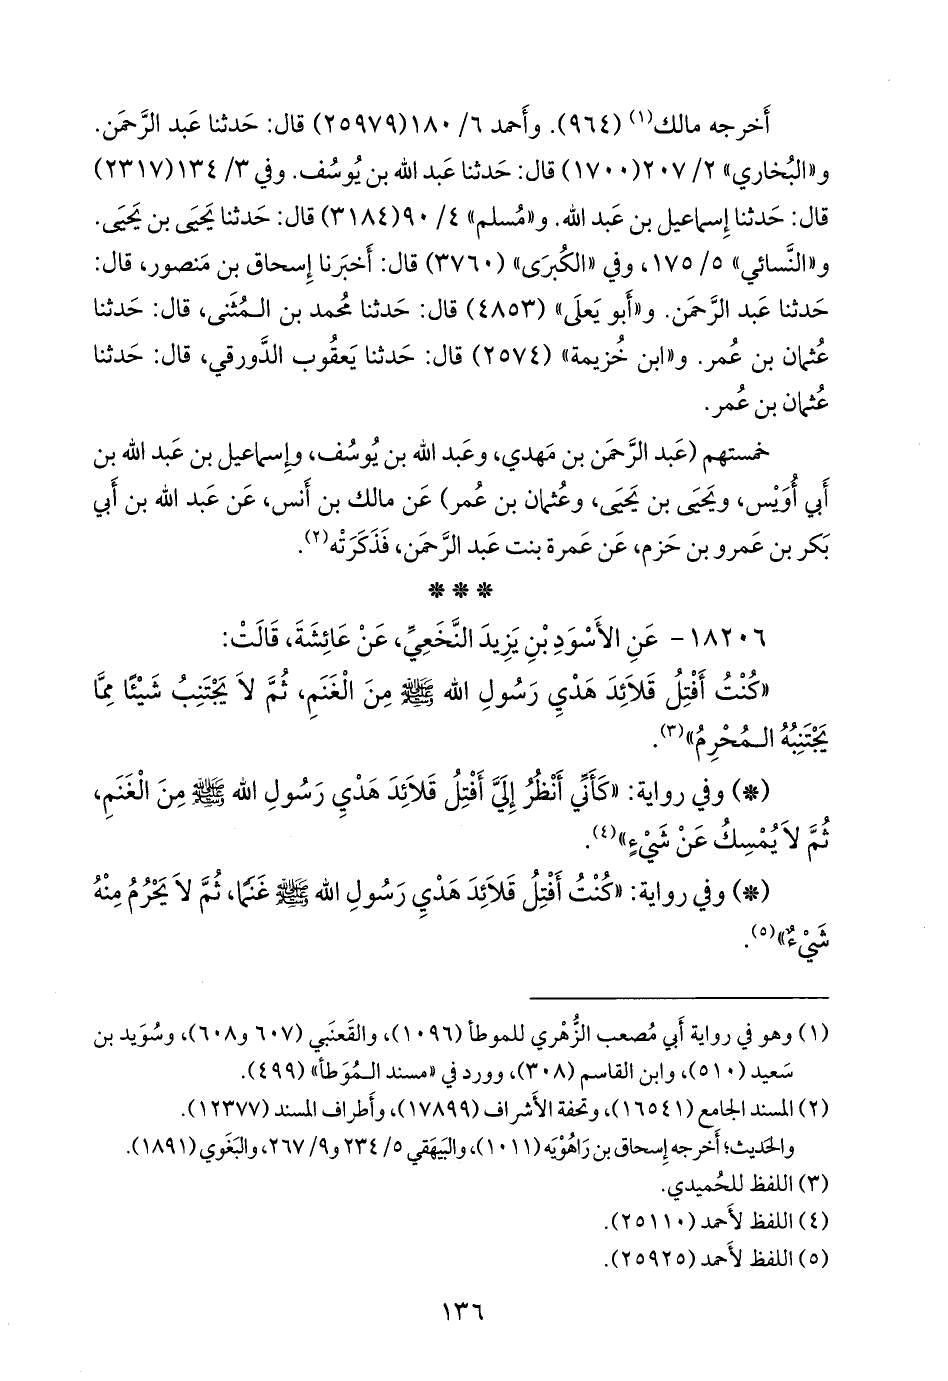 أَخرجه مالك(١) (٩٦٤). وأَحمد ٦/ ١٨٠(٢٥٩٧٩) قال: حَدثنا عَبد الرَّحمَن.
و«البُخاري» ٢/ ٢٠٧(١٧٠٠) قال: حَدثنا عَبد الله بن يُوسُف. وفي ٣/ ١٣٤(٢٣١٧)
قال: حَدثنا إِسماعيل بن عَبد الله. و«مُسلم» ٤/ ٩٠(٣١٨٤) قال: حَدثنا يَحيَى بن يَحيَى.
و«النَّسائي» ٥/ ١٧٥، وفي «الكُبرَى» (٣٧٦٠) قال: أَخبَرنا إِسحاق بن مَنصور، قال:
حَدثنا عَبد الرَّحمَن. و«أَبو يَعلَى» (٤٨٥٣) قال: حَدثنا مُحمد بن الـمُثَنى، قال: حَدثنا
عُثمان بن عُمر. و«ابن خُزيمة» (٢٥٧٤) قال: حَدثنا يَعقُوب الدَّورقي، قال: حَدثنا
عُثمان بن عُمر.
خمستهم (عَبد الرَّحمَن بن مَهدي، وعَبد الله بن يُوسُف، وإِسماعيل بن عَبد الله بن
أَبي أُوَيْس، ويَحيَى بن يَحيَى، وعُثمان بن عُمر) عَن مالك بن أَنس، عَن عَبد الله بن أَبي
بَكر بن عَمرو بن حَزم، عَن عَمرة بنت عَبد الرَّحمَن، فَذَكَرَتْه(٢).
* * *
١٨٢٠٦- عَنِ الأَسْوَدِ بْنِ يَزِيدَ النَّخَعِيِّ، عَنْ عَائِشَةَ، قَالَتْ:
«كُنْتُ أَفْتِلُ قَلَائِدَ هَدْيِ رَسُولِ الله ﷺ مِنَ الْغَنَمِ، ثُمَّ لَا يَجْتَنِبُ شَيْئًا مِمَّا
يَجْتَنِبُهُ الـمُحْرِمُ»(٣).
(*) وفي رواية: «كَأَنِّي أَنْظُرُ إِلَيَّ أَفْتِلُ قَلَائِدَ هَدْيِ رَسُولِ الله ﷺ مِنَ الْغَنَمِ،
ثُمَّ لَا يُمْسِكُ عَنْ شَيْءٍ»(٤).
(*) وفي رواية: «كُنْتُ أَفْتِلُ قَلَائِدَ هَدْيِ رَسُولِ الله ﷺ غَنَمًا، ثُمَّ لَا يَحْرُمُ مِنْهُ
شَيْءٌ»(٥).
(١) وهو في رواية أَبي مُصعب الزُّهْري للموطأ (١٠٩٦)، والقَعنَبي (٦٠٧ و٦٠٨)، وسُوَيد بن
سَعيد (٥١٠)، وابن القاسم (٣٠٨)، وورد في «مسند الـمُوَطأ» (٤٩٩).
(٢) المسند الجامع (١٦٥٤١)، وتحفة الأَشراف (١٧٨٩٩)، وأَطراف المسند (١٢٣٧٧).
والحَديث؛ أَخرجه إِسحاق بن رَاهُوْيَه (١٠١١)، والبَيهَقي ٥/ ٢٣٤ و٩/ ٢٦٧، والبَغَوي (١٨٩١).
(٣) اللفظ للحُميدي.
(٤) اللفظ لأَحمد (٢٥١١٠).
(٥) اللفظ لأَحمد (٢٥٩٢٥).
١٣٦